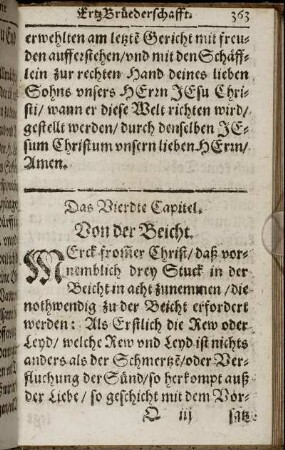 ErtzBrüederschafft. 363
erwehlten am letztē Gericht mit freu-
den aufferstehen/vnd mit den Schäff-
lein zur rechten Hand deines lieben
Sohns vnsers HErrn JEsu Chri-
sti/wann er diese Welt richten wird/
gestellt werden/durch denselben JE-
sum Christum vnsern lieben HErrn/
Amen.
Das Vierdte Capitel.
Von der Beicht.
MErck from̄er Christ/daß vor-
nemblich drey Stuck in der
Beicht in acht zunemmen/die
nothwendig zu der Beicht erfordert
werden: Als Erstlich die Rew oder
Leyd/welche Rew vnd Leyd ist nichts
anders als der Schmertzē/oder Ver-
fluchung der Sünd/so herkompt auß
der Liebe/so geschicht mit dem Vor-
Q iij satz